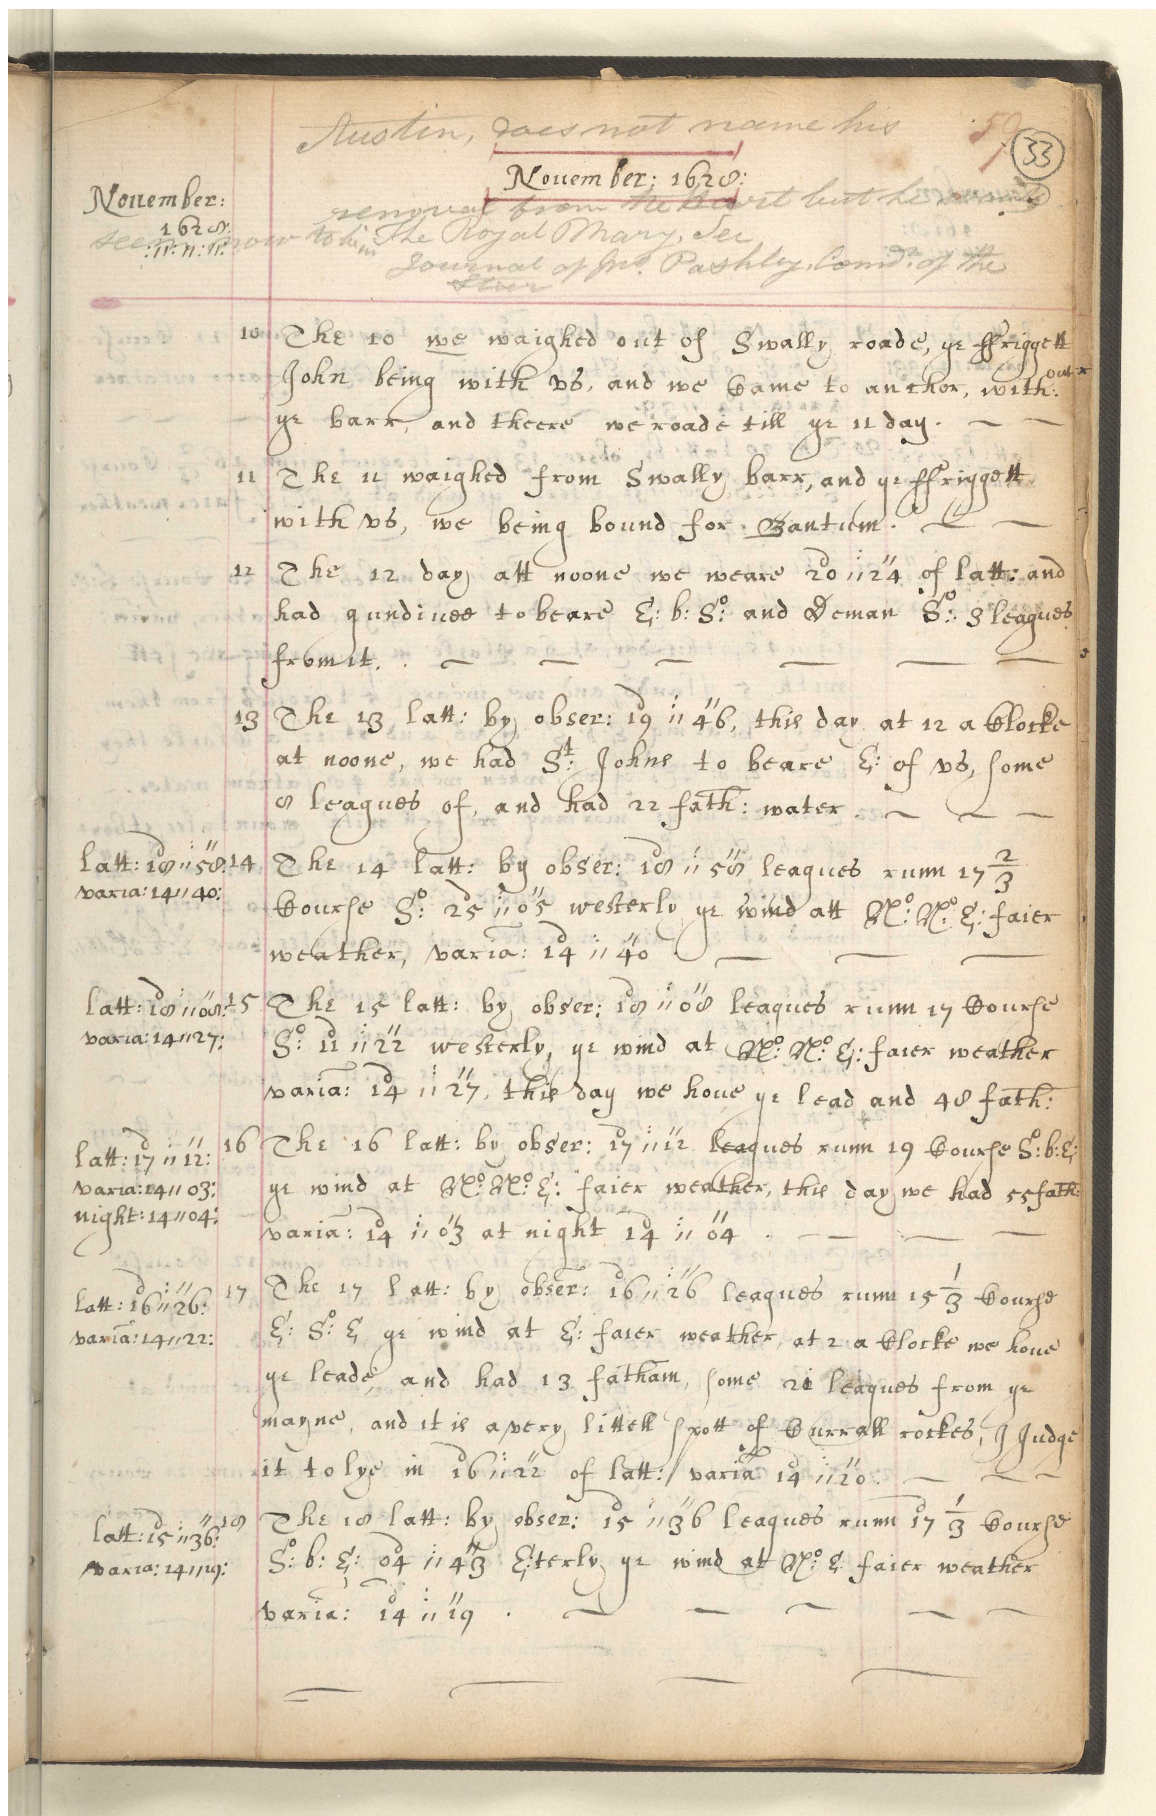 Austin, does not name his
59
33
Nouember: 1628:
Nouember:
1628:
:11:11:11:
removal from the Hart but he
seems now to him The Royal Mary, See
Journal of Jno. Pashley, Comdr. of the
Starr
10 The 10 we waighed out of Swally roade, ye ffriggett
John being with vs, and we Came to anchor, with:
out
ye barr, and theere we roade till ye 11 day.
11 The 11 waighed from Swally barr, and ye ffriggett
with vs, we being bound for Bantum.
12 The 12 day att noone we weare 20d 11 24 of latt: and
had gundiuee to beare E: b: So: and Deman So: 3 leagues
from it.
13 The 13 latt: by obser: 19d 11 46, this day at 12 a Clocke
at noone, we had St: Johns to beare E: of vs, some
8 leagues of, and had 22 fath: water
latt: 18d 11 58: 14 The 14 latt: by obser: 18d 11 58 leagues runn 17 2/3
varia: 14 11 40: Course So: 25d 11 05 westerly ye wind att No: No: E: faier
weather, varia: 14d 11 40
latt: 18d 11 08: 15 The 15 latt: by obser: 18d 11 08 leagues runn 17 Course
varia: 14 11 27: So: 11d 11 22 westerly, ye wind at No: No: E: faier weather
varia: 14d 11 27, this day we houe ye lead and 48 fath:
latt: 17d 11 12: 16 The 16 latt: by obser: 17d 11 12 leagues runn 19 Course So: b: E:
varia: 14 11 03: ye wind at No: No: E: faier weather, this day we had 55 fath:
night: 14 11 04: varia: 14d 11 03 at night 14d 11 04
latt: 16d 11 26: 17 The 17 latt: by obser: 16d 11 26 leagues runn 15 1/3 Course
varia: 14 11 22: E: So: E ye wind at E: faier weather, at 2 a Clocke we houe
ye leade, and had 13 fatham, some 21 leagues from ye
mayne, and it is a very littell spott of Currall rockes, I Judge
it to lye in 16d 11 22 of latt: varia 14d 11 20
latt: 15d 11 36: 18 The 18 latt: by obser: 15d 11 36 leagues runn 17 1/3 Course
varia: 14 11 19: So: b: E: 04d 11 43 E:terly ye wind at No: E faier weather
varia: 14d 11 19